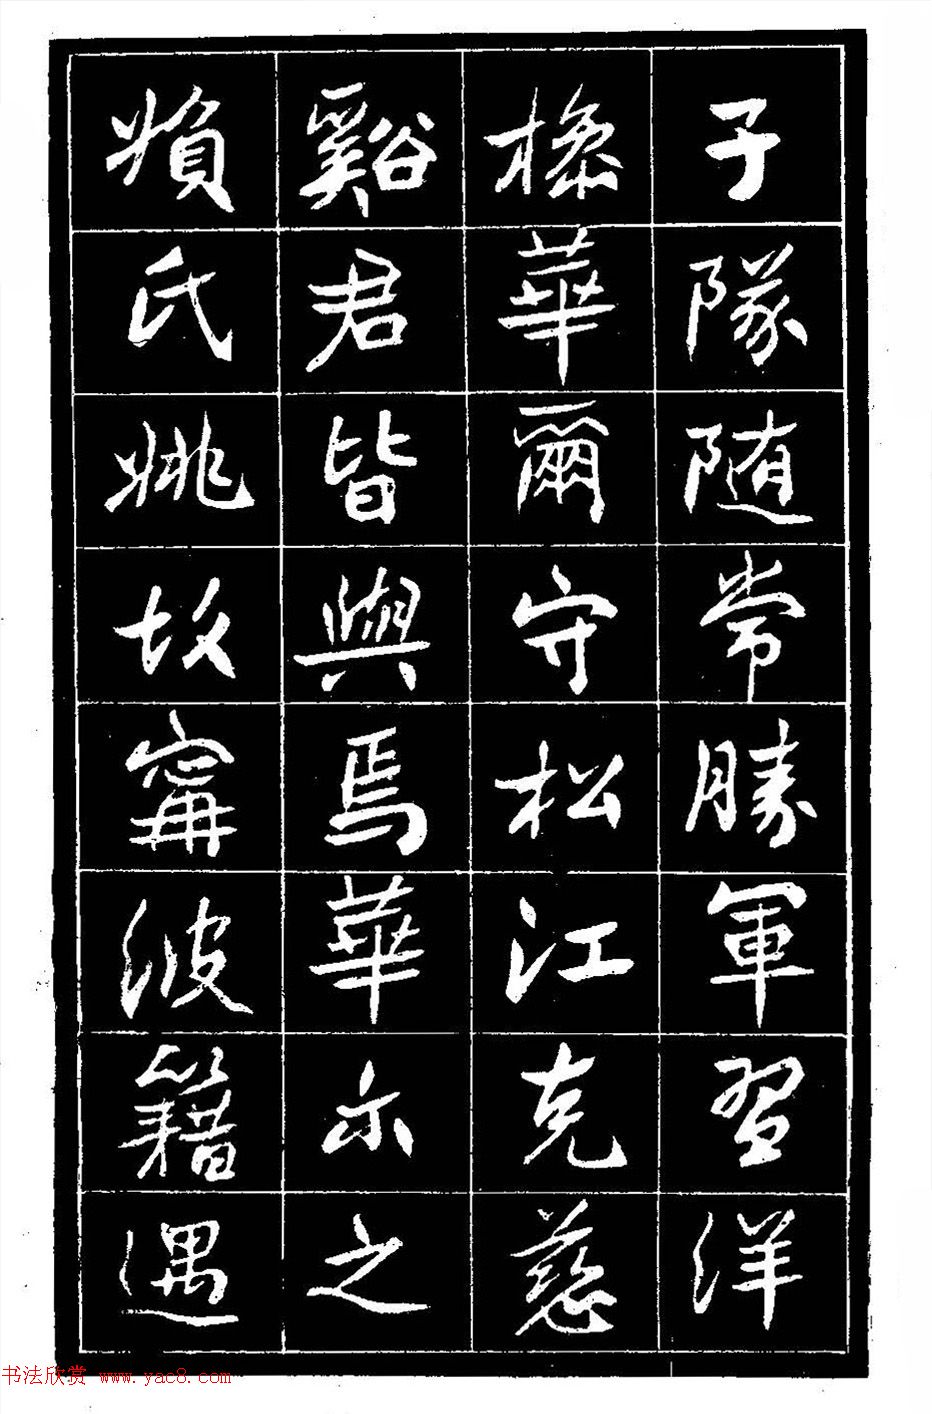 子隊随常勝軍習洋
槍華爾守松江克慈
谿君皆與焉華尒之
殯氏姚故寗波籍遇
书法欣赏 www.yac8.com